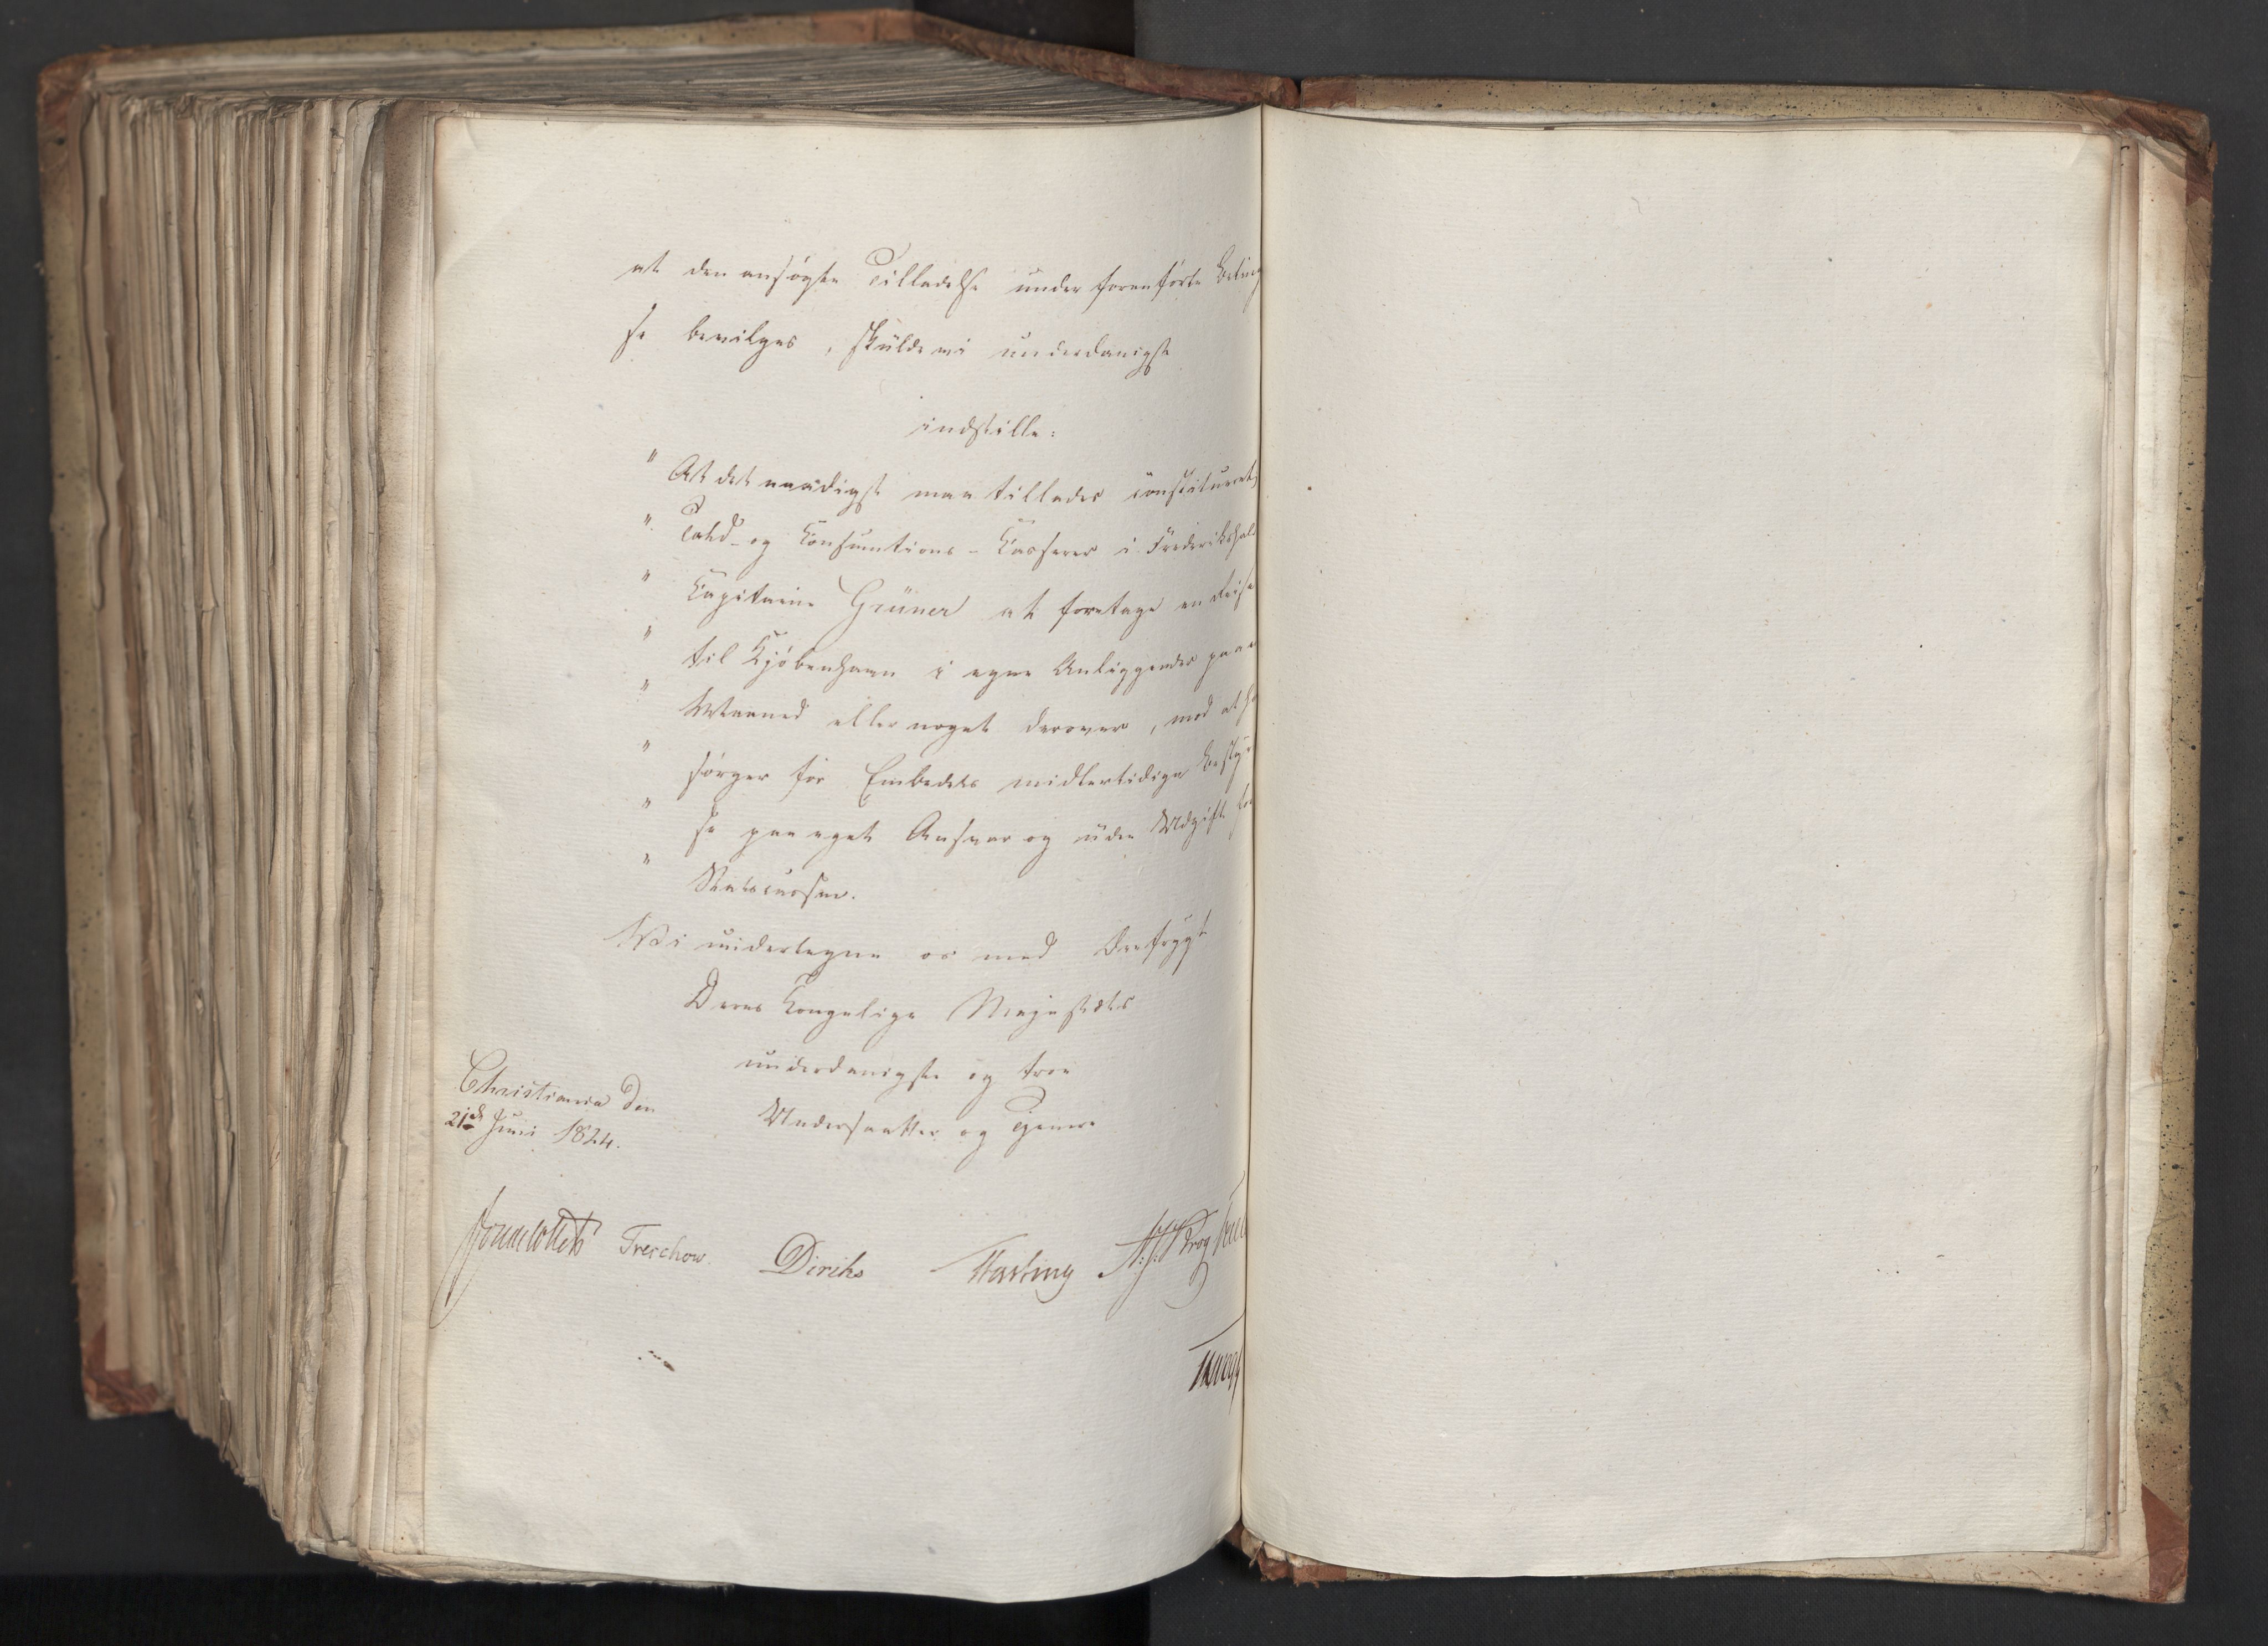 at den ansøgte Tilladelse under foranførte Beting
se bevilges, skulde vi underdanigst
indstille:
" At det naadigst maa tillades constitueret
" Told- og Consumtions-Casserer i Frederikshald
" Capitaine Grüner at foretage en Reise
" til Kjøbenhavn i egne Anliggender paa
" Maaned eller noget derover, mod at h
" sørger for Embedets midlertidige Besty
" se paa eget Ansvar og uden Udgift fo
" Statscassen.
Vi undertegne os med Ærefrygt
Deres Kongelige Majestæts
underdanigste og troe
Undersaatter og Tjenere
Christiania den
21de Juni 1824.
Sommerhielm Treschow Diriks Fasting